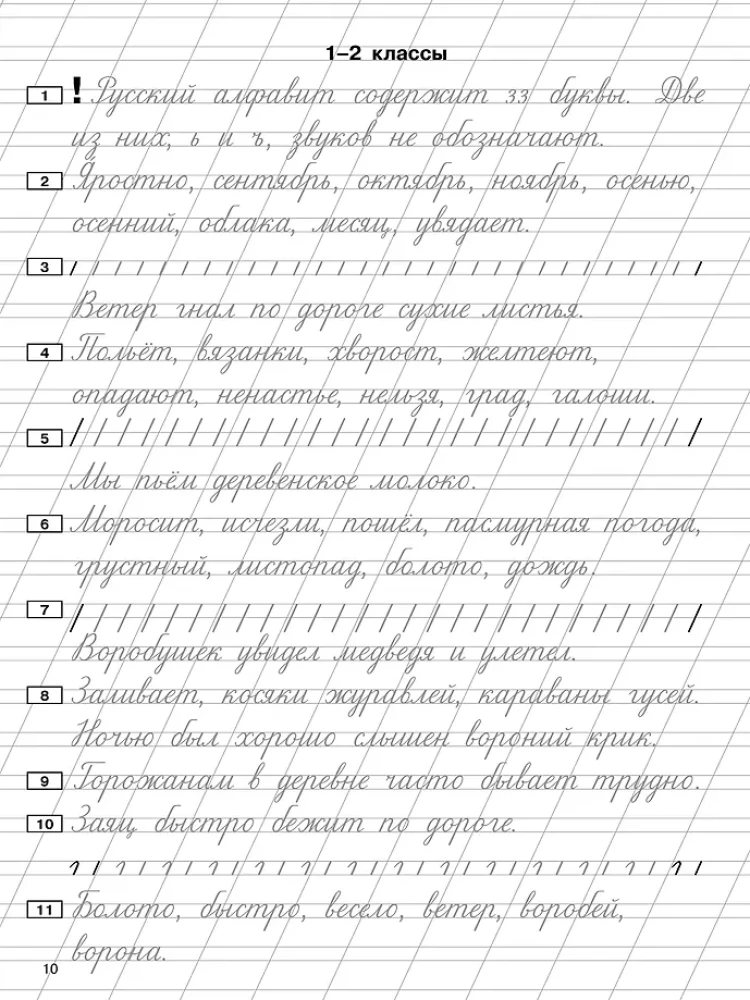 1–2 классы
1 ! Русский алфавит содержит 33 буквы. Две
из них, ь и ъ, звуков не обозначают.
2 Яростно, сентябрь, октябрь, ноябрь, осенью,
осенний, облака, месяц, увядает.
3
Ветер гнал по дороге сухие листья.
4 Польёт, вязанки, хворост, желтеют,
опадают, ненастье, нельзя, град, галоши.
5
Мы пьём деревенское молоко.
6 Моросит, исчезли, пошёл, пасмурная погода,
грустный, листопад, болото, дождь.
7
Воробушек увидел медведя и улетел.
8 Заливает, косяки журавлей, караваны гусей.
Ночью был хорошо слышен вороний крик.
9 Горожанам в деревне часто бывает трудно.
10 Заяц быстро бежит по дороге.
11 Болото, быстро, весело, ветер, воробей,
ворона.
10